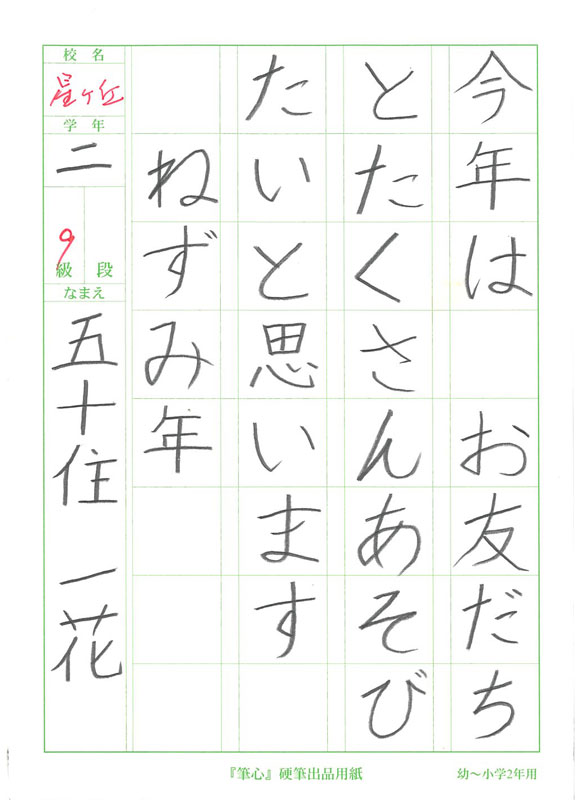 今年は　お友だち
とたくさんあそび
たいと思います
ねずみ年
校名
星ヶ丘
学年
二
9
級 段
なまえ
五十住 一花
『筆心』硬筆出品用紙
幼〜小学2年用